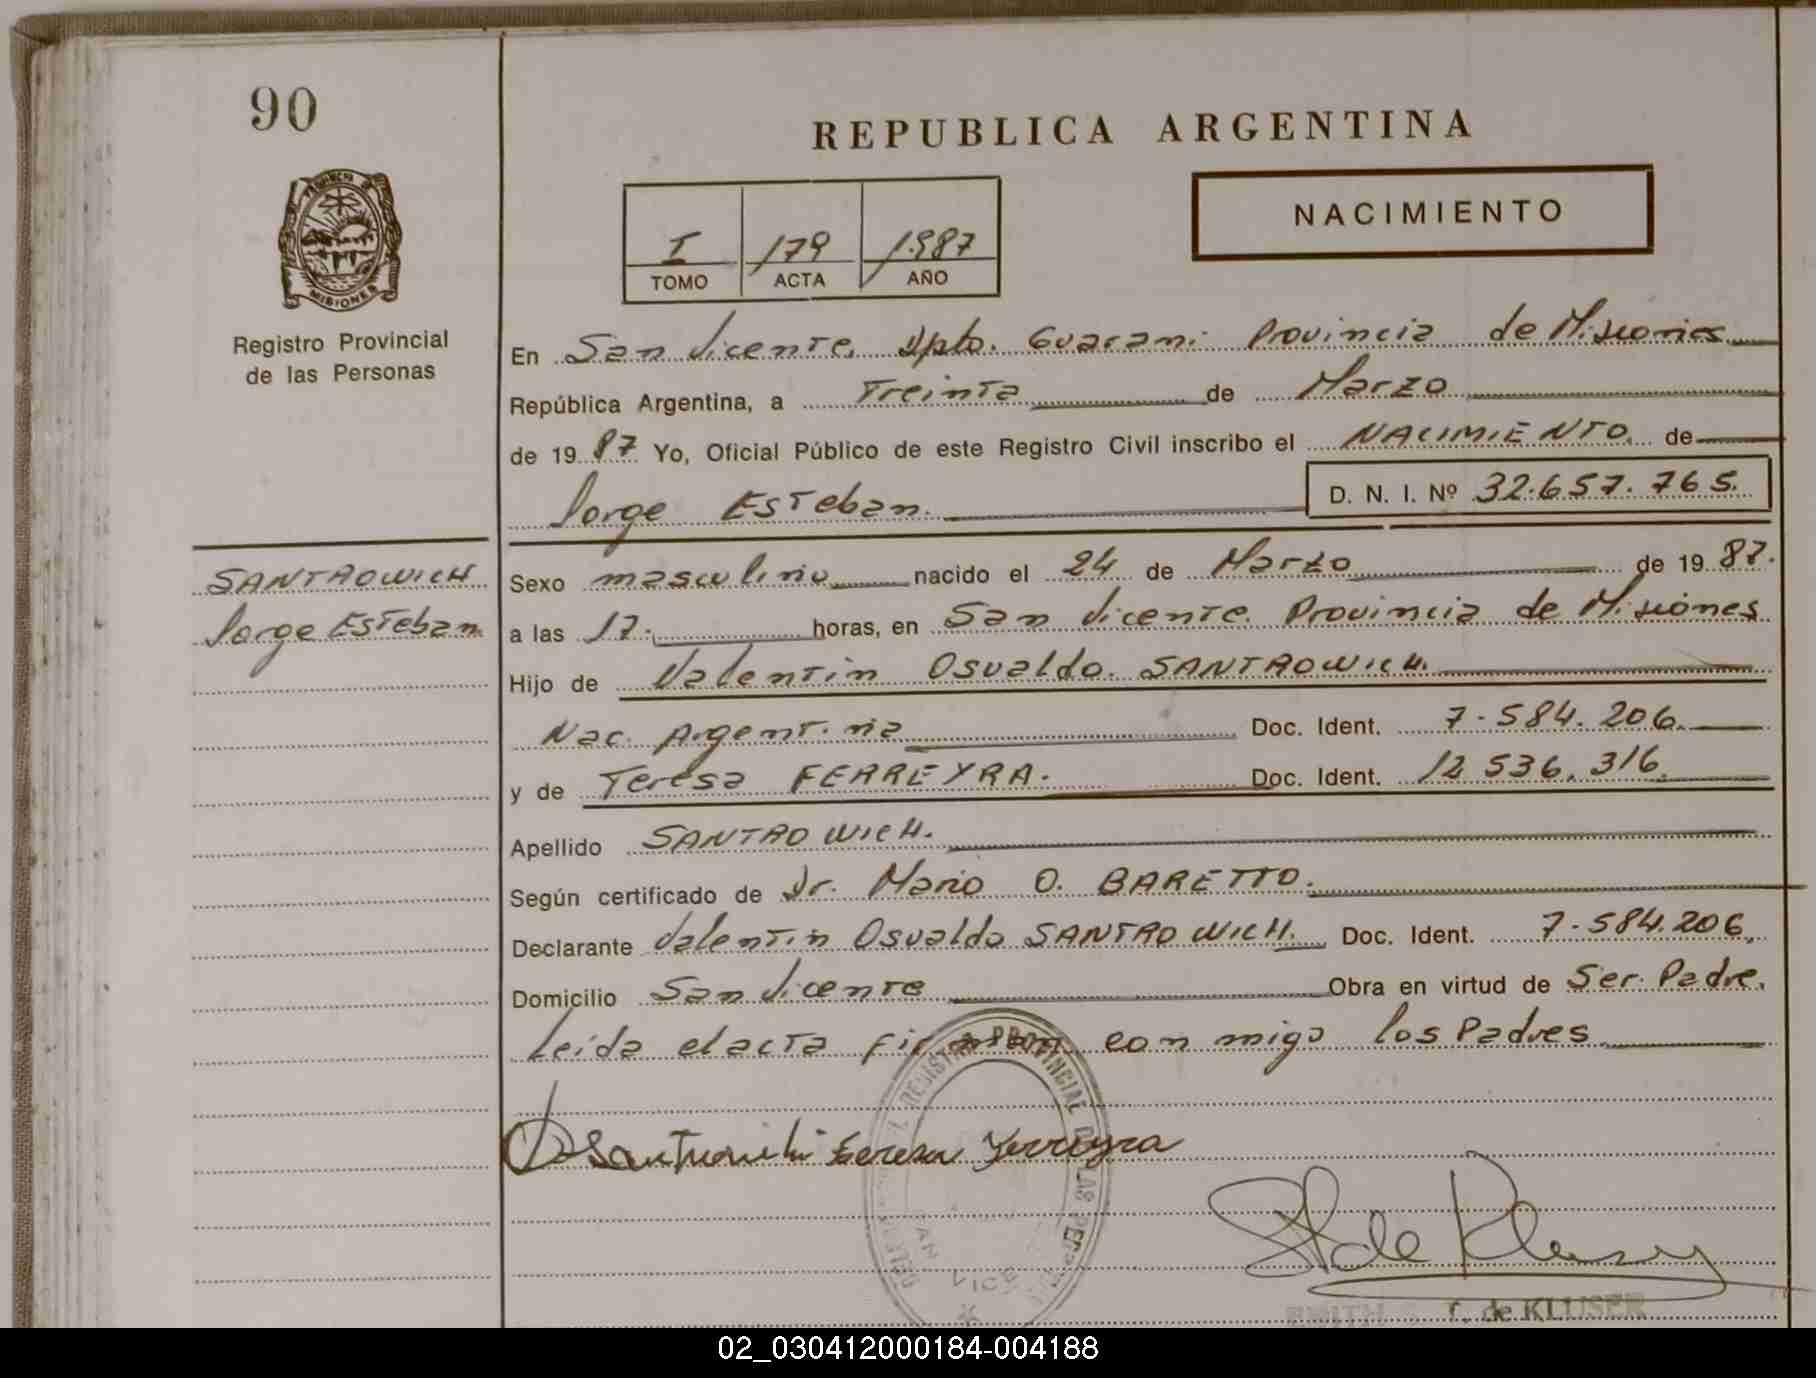 90
REPUBLICA ARGENTINA
NACIMIENTO
I 179 1.987
TOMO ACTA AÑO
PROVINCIA DE
MISIONES
Registro Provincial
de las Personas
En San Vicente, Dpto. Guarani Provincia de Misiones
República Argentina, a Treinta de Marzo
de 19 87 Yo, Oficial Público de este Registro Civil inscribo el NACIMIENTO. de
Jorge Esteban. D. N. I. Nº 32.657.765.
SANTROWICH
Jorge Esteban
Sexo masculino nacido el 24 de Marzo de 19 87.
a las 17. horas, en San Vicente. Provincia de Misiones
Hijo de Valentin Osvaldo. SANTROWICH.
Nac. Argentina Doc. Ident. 7.584.206.
y de Teresa FERREYRA. Doc. Ident. 12 536.316.
Apellido SANTROWICH.
Según certificado de Dr. Mario O. BARETTO.
Declarante Valentin Osvaldo SANTROWICH. Doc. Ident. 7.584.206.
Domicilio San Vicente Obra en virtud de Ser Padre.
Leida el acta firman con migo los Padres
REGISTRO PROVINCIAL DE LAS PERSONAS
SAN VICENTE
Teresa Ferreyra
de Kluser
de KLUSER
02_030412000184-004188